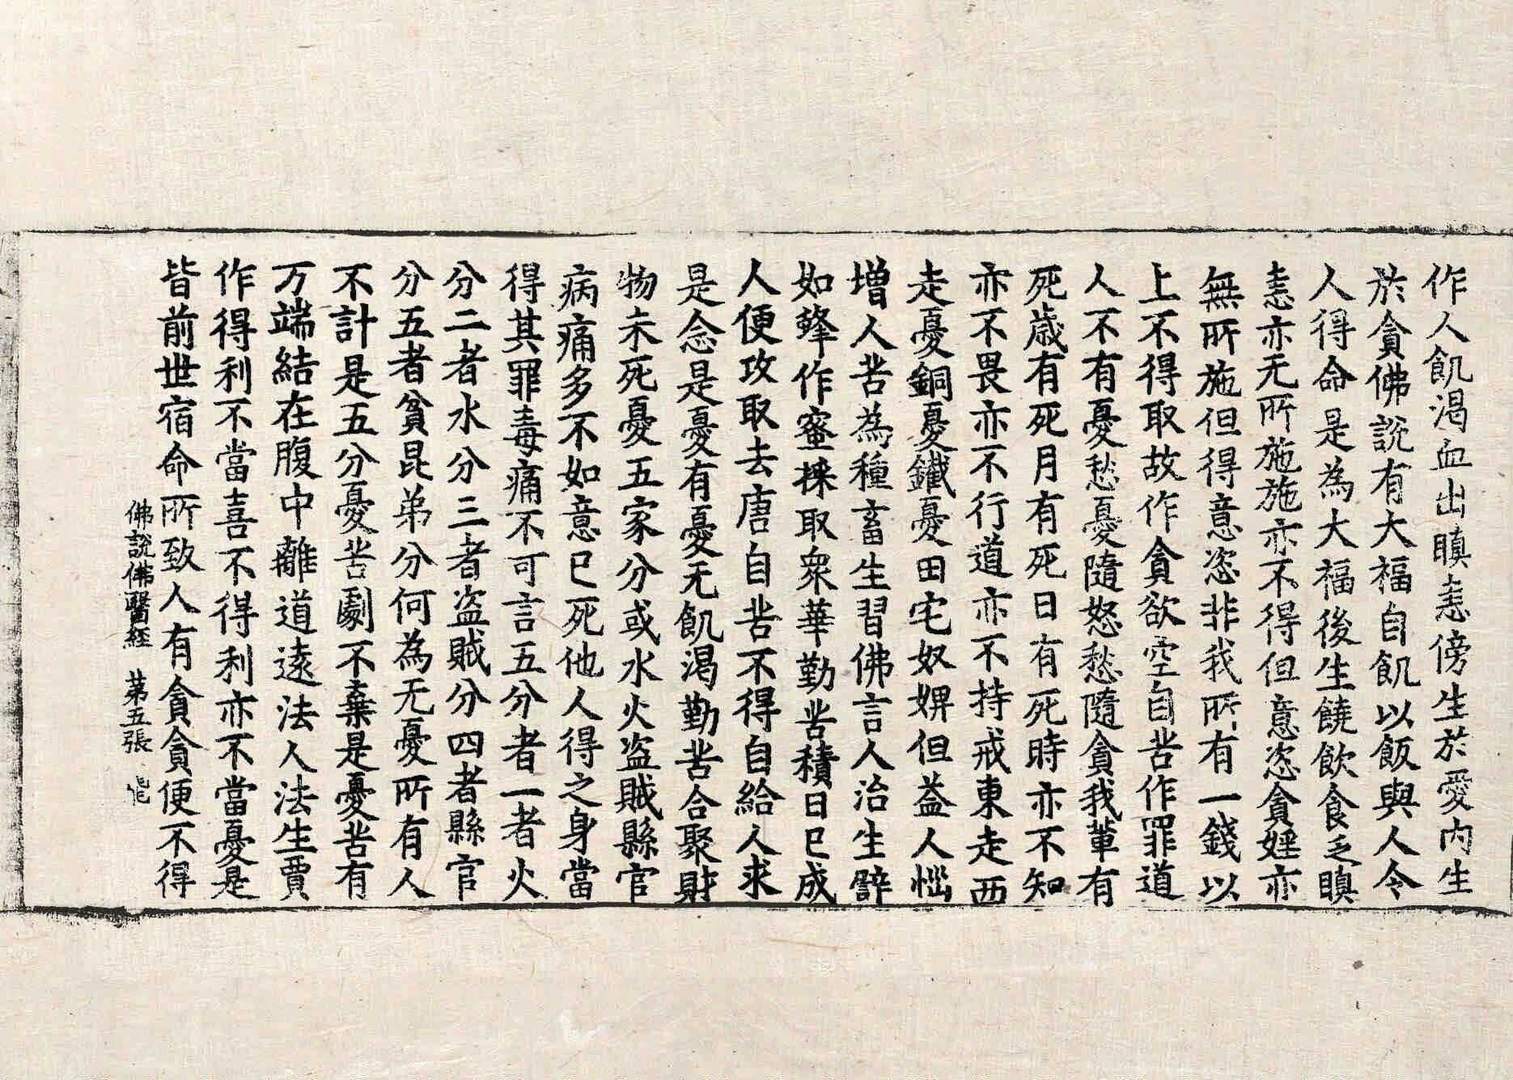 作人飢渴血出瞋恚傍生於愛内生
於貪佛說有大福自飢以飯與人令
人得命是為大福後生饒飲食乏瞋
恚亦无所施施亦不得但意恣貪婬亦
無所施但得意恣非我所有一錢以
上不得取故作貪欲空自苦作罪道
人不有憂愁憂隨怒愁隨貪我輩有
死歲有死月有死日有死時亦不知
亦不畏亦不行道亦不持戒東走西
走憂銅憂鐵憂田宅奴婢但益人惱
增人苦為種畜生習佛言人治生譬
如蜂作蜜採取衆華勤苦積日已成
人便攻取去唐自苦不得自給人求
是念是憂有憂无飢渴勤苦合聚財
物未死憂五家分或水火盗賊縣官
病痛多不如意已死他人得之身當
得其罪毒痛不可言五分者一者火
分二者水分三者盗賊分四者縣官
分五者貧昆弟分何為无憂所有人
不計是五分憂苦劇不棄是憂苦有
万端結在腹中離道遠法人法生賈
作得利不當喜不得利亦不當憂是
皆前世宿命所致人有貪貪便不得
佛說佛醫經 第五張